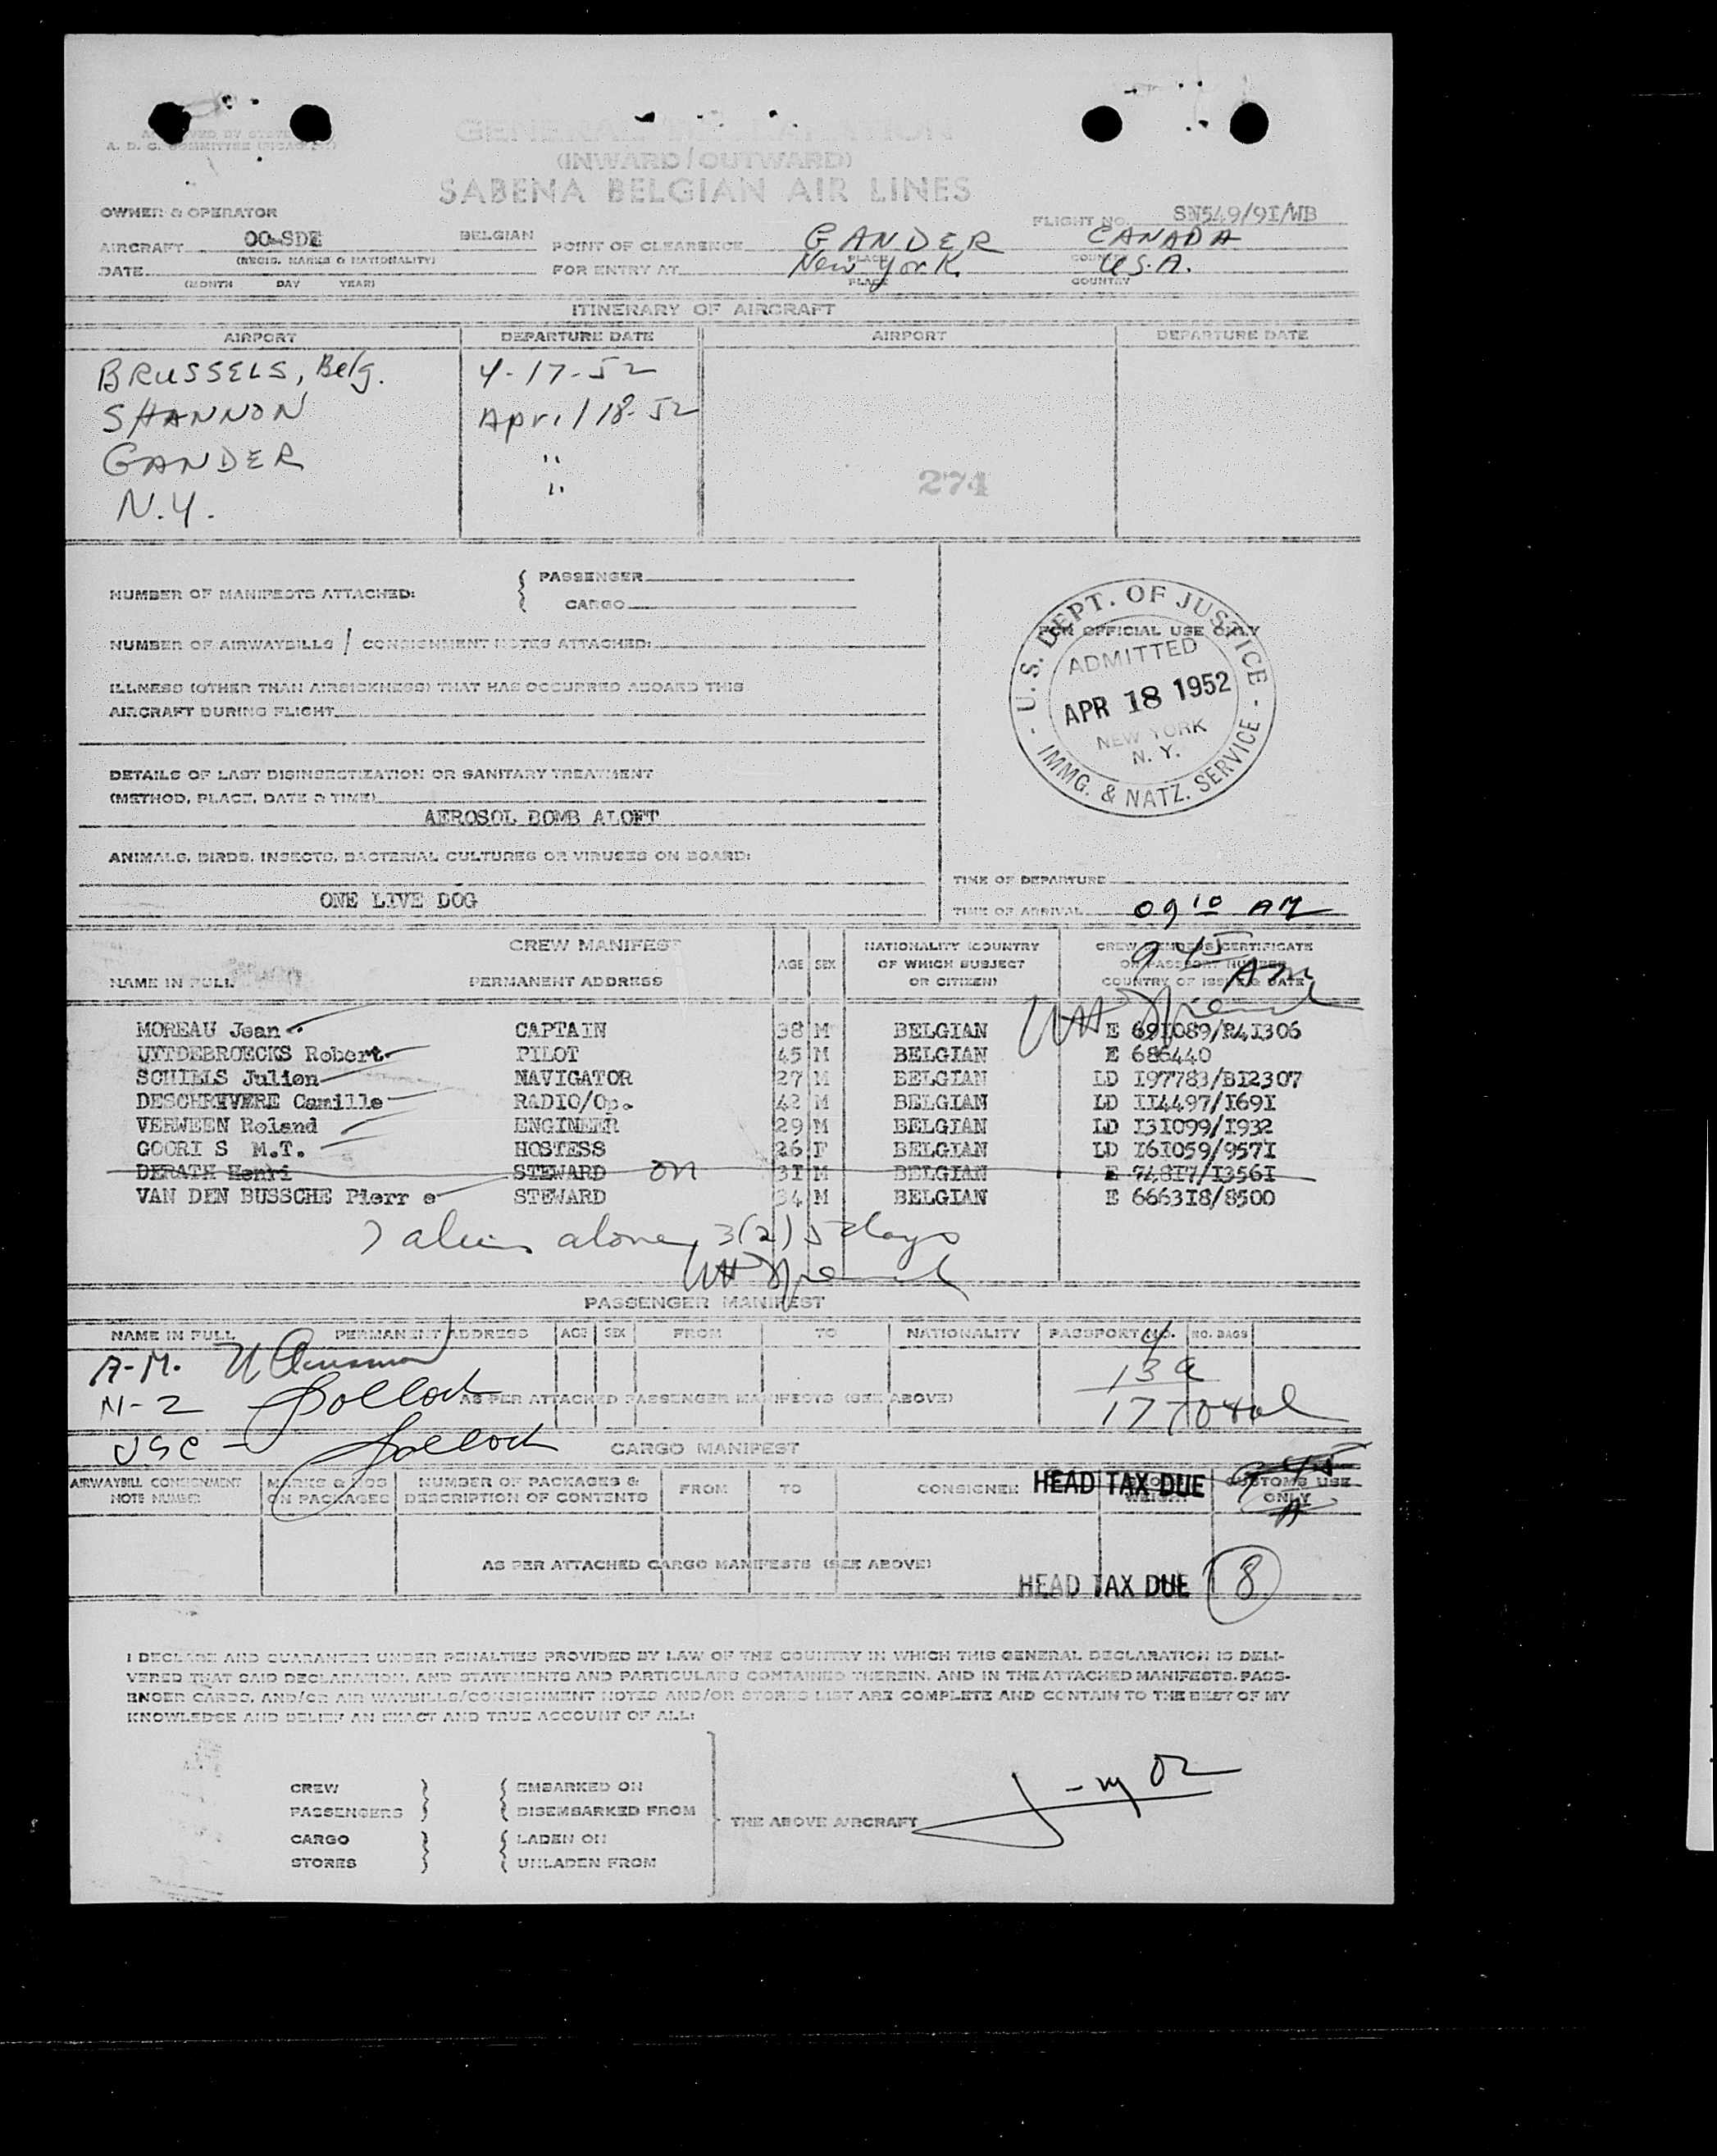 A. D. C. COMMITTEE
GENERAL DECLARATION
(INWARD/OUTWARD)
SABENA BELGIAN AIR LINES
OWNER & OPERATOR
FLIGHT NO. SN549/9I/WB
AIRCRAFT OO-SDE BELGIAN POINT OF CLEARENCE GANDER CANADA
(REGIS. MARKS & NATIONALITY) PLACE COUNTRY
DATE FOR ENTRY AT New York U.S.A.
(MONTH DAY YEAR) PLACE COUNTRY
ITINERARY OF AIRCRAFT
AIRPORT DEPARTURE DATE AIRPORT DEPARTURE DATE
BRUSSELS, Belg. 4-17-52
SHANNON April 18-52
GANDER "
274
N.Y. "
NUMBER OF MANIFESTS ATTACHED: { PASSENGER
CARGO
NUMBER OF AIRWAYBILLS / CONSIGNMENT NOTES ATTACHED:
ILLNESS (OTHER THAN AIRSICKNESS) THAT HAS OCCURRED ABOARD THIS
AIRCRAFT DURING FLIGHT
FOR OFFICIAL USE ONLY
U.S. DEPT. OF JUSTICE
ADMITTED
APR 18 1952
NEW YORK
N. Y.
IMMG. & NATZ. SERVICE
DETAILS OF LAST DISINSECTIZATION OR SANITARY TREATMENT
(METHOD, PLACE, DATE & TIME)
AEROSOL BOMB ALOFT
ANIMALS, BIRDS, INSECTS, BACTERIAL CULTURES OR VIRUSES ON BOARD:
ONE LIVE DOG
TIME OF DEPARTURE
TIME OF ARRIVAL 09 10 AM
CREW MANIFEST
NAME IN FULL PERMANENT ADDRESS AGE SEX NATIONALITY (COUNTRY OF WHICH SUBJECT OR CITIZEN) CREW MEMBERS CERTIFICATE OR PASSPORT NUMBER COUNTRY OF ISSUE & DATE
9 45 AM
MOREAU Jean CAPTAIN 38 M BELGIAN E 69I089/R4I306
UYTDEBROECKS Robert PILOT 45 M BELGIAN E 686440
SCHILLS Julien NAVIGATOR 27 M BELGIAN LD I97783/BI2307
DESCHREVERE Camille RADIO/Op. 42 M BELGIAN LD II4497/I69I
VERWEEN Roland ENGINEER 29 M BELGIAN LD I3I099/I932
GOORI S M.T. HOSTESS 26 F BELGIAN LD I6I059/957I
DERATH Henri STEWARD on 3I M BELGIAN E 748I7/I356I
VAN DEN BUSSCHE Pierr e STEWARD 34 M BELGIAN E 6663I8/8500
7 aliens alone, 3(2) 5 days
PASSENGER MANIFEST
NAME IN FULL PERMANENT ADDRESS AGE SEX FROM TO NATIONALITY PASSPORT NO. NO. BAGS
A-M. 4
13 a
N-2 Pollock AS PER ATTACHED PASSENGER MANIFESTS (SEE ABOVE) 17 Total
USC - Pollock
CARGO MANIFEST
AIRWAYBILL CONSIGNMENT NOTE NUMBER MARKS & NOS ON PACKAGES NUMBER OF PACKAGES & DESCRIPTION OF CONTENTS FROM TO CONSIGNEE WEIGHT CUSTOMS USE ONLY
HEAD TAX DUE
AS PER ATTACHED CARGO MANIFESTS (SEE ABOVE)
HEAD TAX DUE 8
I DECLARE AND GUARANTEE UNDER PENALTIES PROVIDED BY LAW OF THE COUNTRY IN WHICH THIS GENERAL DECLARATION IS DELI-
VERED THAT SAID DECLARATION, AND STATEMENTS AND PARTICULARS CONTAINED THEREIN, AND IN THE ATTACHED MANIFESTS, PASS-
ENGER CARDS, AND/OR AIR WAYBILLS/CONSIGNMENT NOTES AND/OR STORES LIST ARE COMPLETE AND CONTAIN TO THE BEST OF MY
KNOWLEDGE AND BELIEF AN EXACT AND TRUE ACCOUNT OF ALL:
CREW EMBARKED ON
PASSENGERS DISEMBARKED FROM
THE ABOVE AIRCRAFT
CARGO LADEN ON
STORES UNLADEN FROM